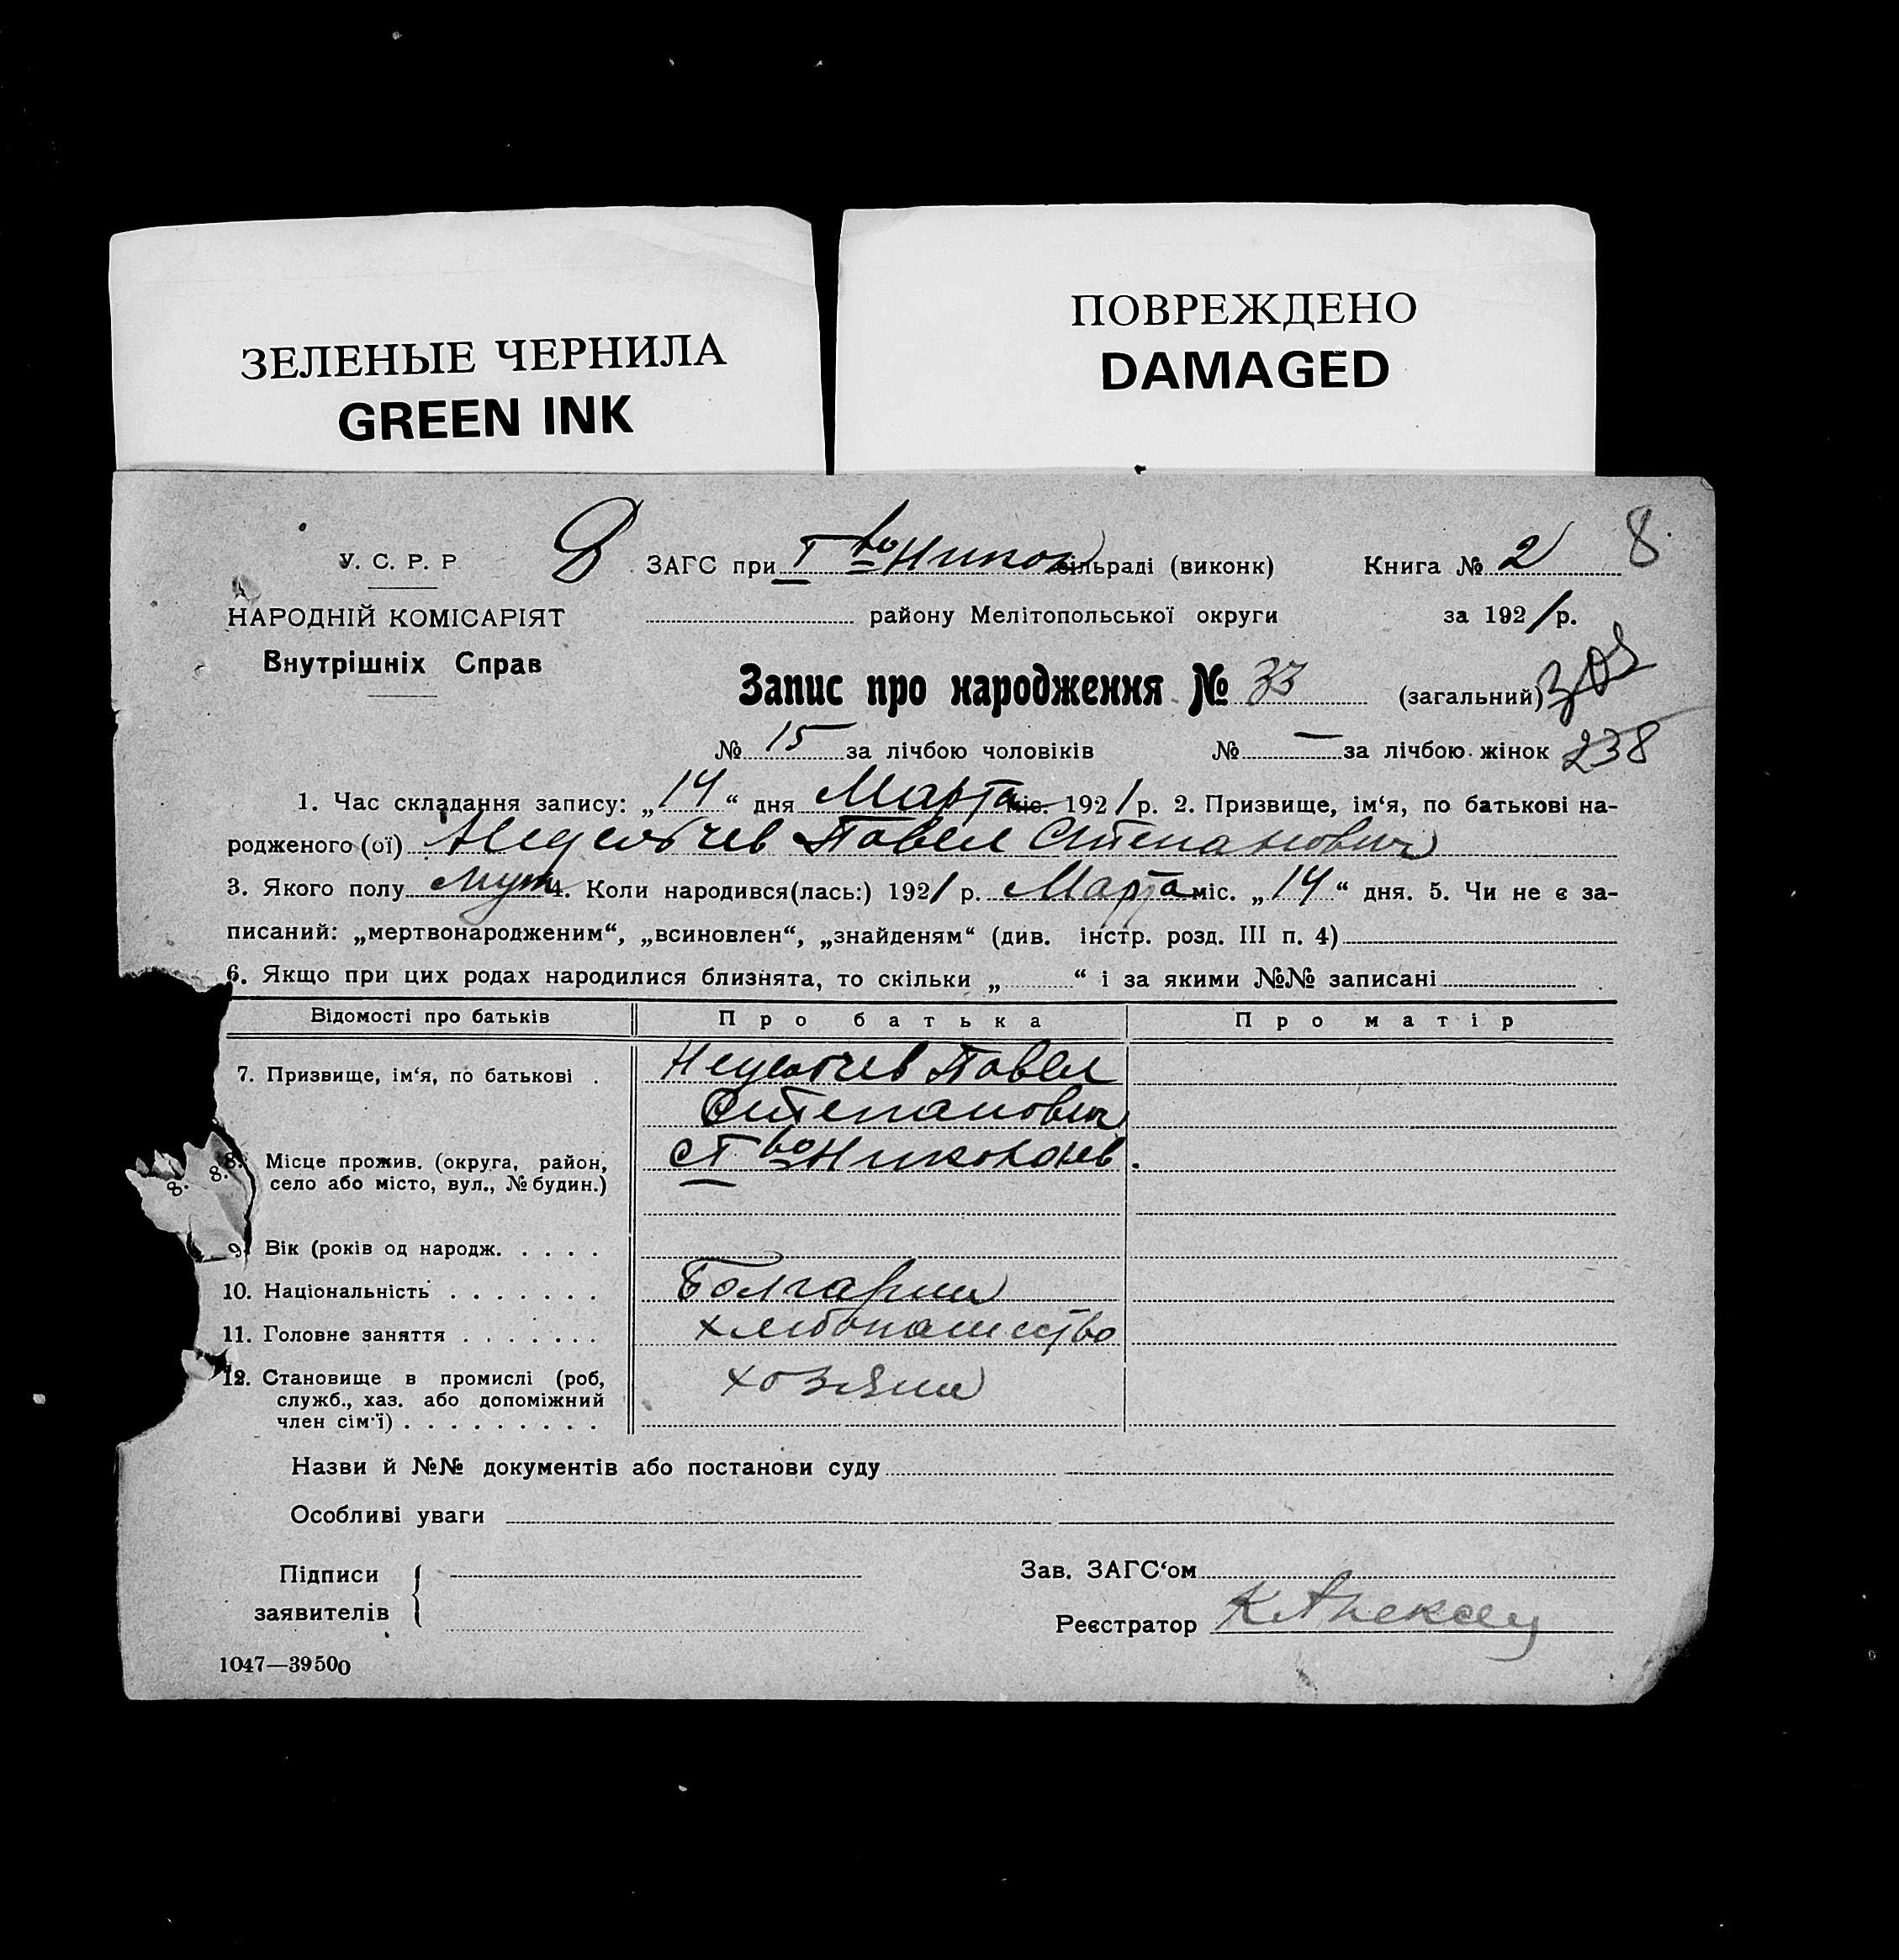 ЗЕЛЕНЫЕ ЧЕРНИЛА
GREEN INK
ПОВРЕЖДЕНО
DAMAGED
8
У. С. Р. Р.
ЗАГС при І во Никол сільраді (виконк)
Книга № 2
НАРОДНІЙ КОМІСАРІЯТ
району Мелітопольської округи
за 1921 р.
Внутрішніх Справ
Запис про народження № 33 (загальний)
№ 15 за лічбою чоловіків № — за лічбою жінок 238
1. Час складання запису: „14“ дня Марта міс. 1921 р. 2. Призвище, ім‘я, по батькові на-
родженого (ої) Недельчев Павел Степанович
3. Якого полу муж 4. Коли народився(лась:) 1921 р. Марта міс. „14“ дня. 5. Чи не є за-
писаний: „мертвонародженим“, „всиновлен“, „знайденям“ (див. інстр. розд. III п. 4)
6. Якщо при цих родах народилися близнята, то скільки „ “ і за якими №№ записані
Відомості про батьків
Про батька
Про матір
7. Призвище, ім‘я, по батькові .
Недельчев Павел
Степанович
8. 8. 8. Місце прожив. (округа, район,
село або місто, вул., № будин.)
с І во Николаев.
9. Вік (років од народж. . . . .
10. Національність . . . . . . .
Болгарин
11. Головне заняття . . . . . . .
хлебопашество
12. Становище в промислі (роб,
служб., хаз. або допоміжний
член сім‘ї) . . . . . . . . .
хозяин
Назви й №№ документів або постанови суду
Особливі уваги
Підписи
заявителів
Зав. ЗАГС‘ом
Реєстратор К Алексеу
1047—39500